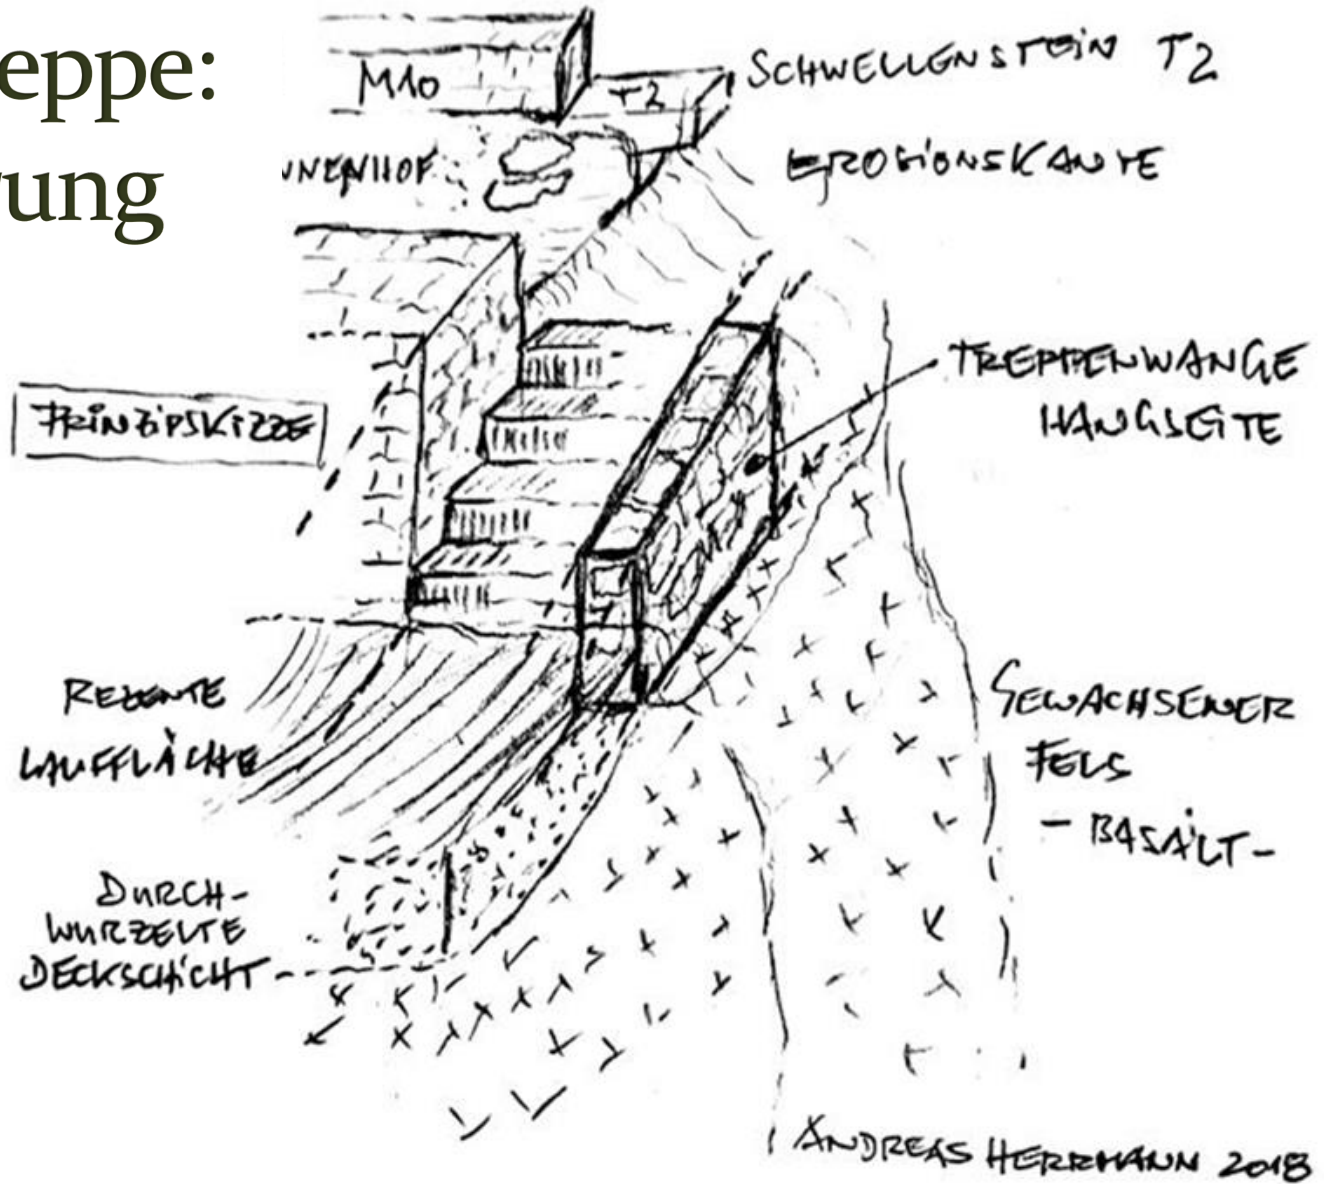 eppe:
rung
M10
T2
SCHWELLENSTEIN T2
NNENHOF
EROSIONSKANTE
PRINZIPSKIZZE
TREPPENWANGE
HANGSEITE
REZENTE
LAUFFLÄCHE
GEWACHSENER
FELS
- BASALT -
DURCH-
WURZELTE
DECKSCHICHT
ANDREAS HERRMANN 2018